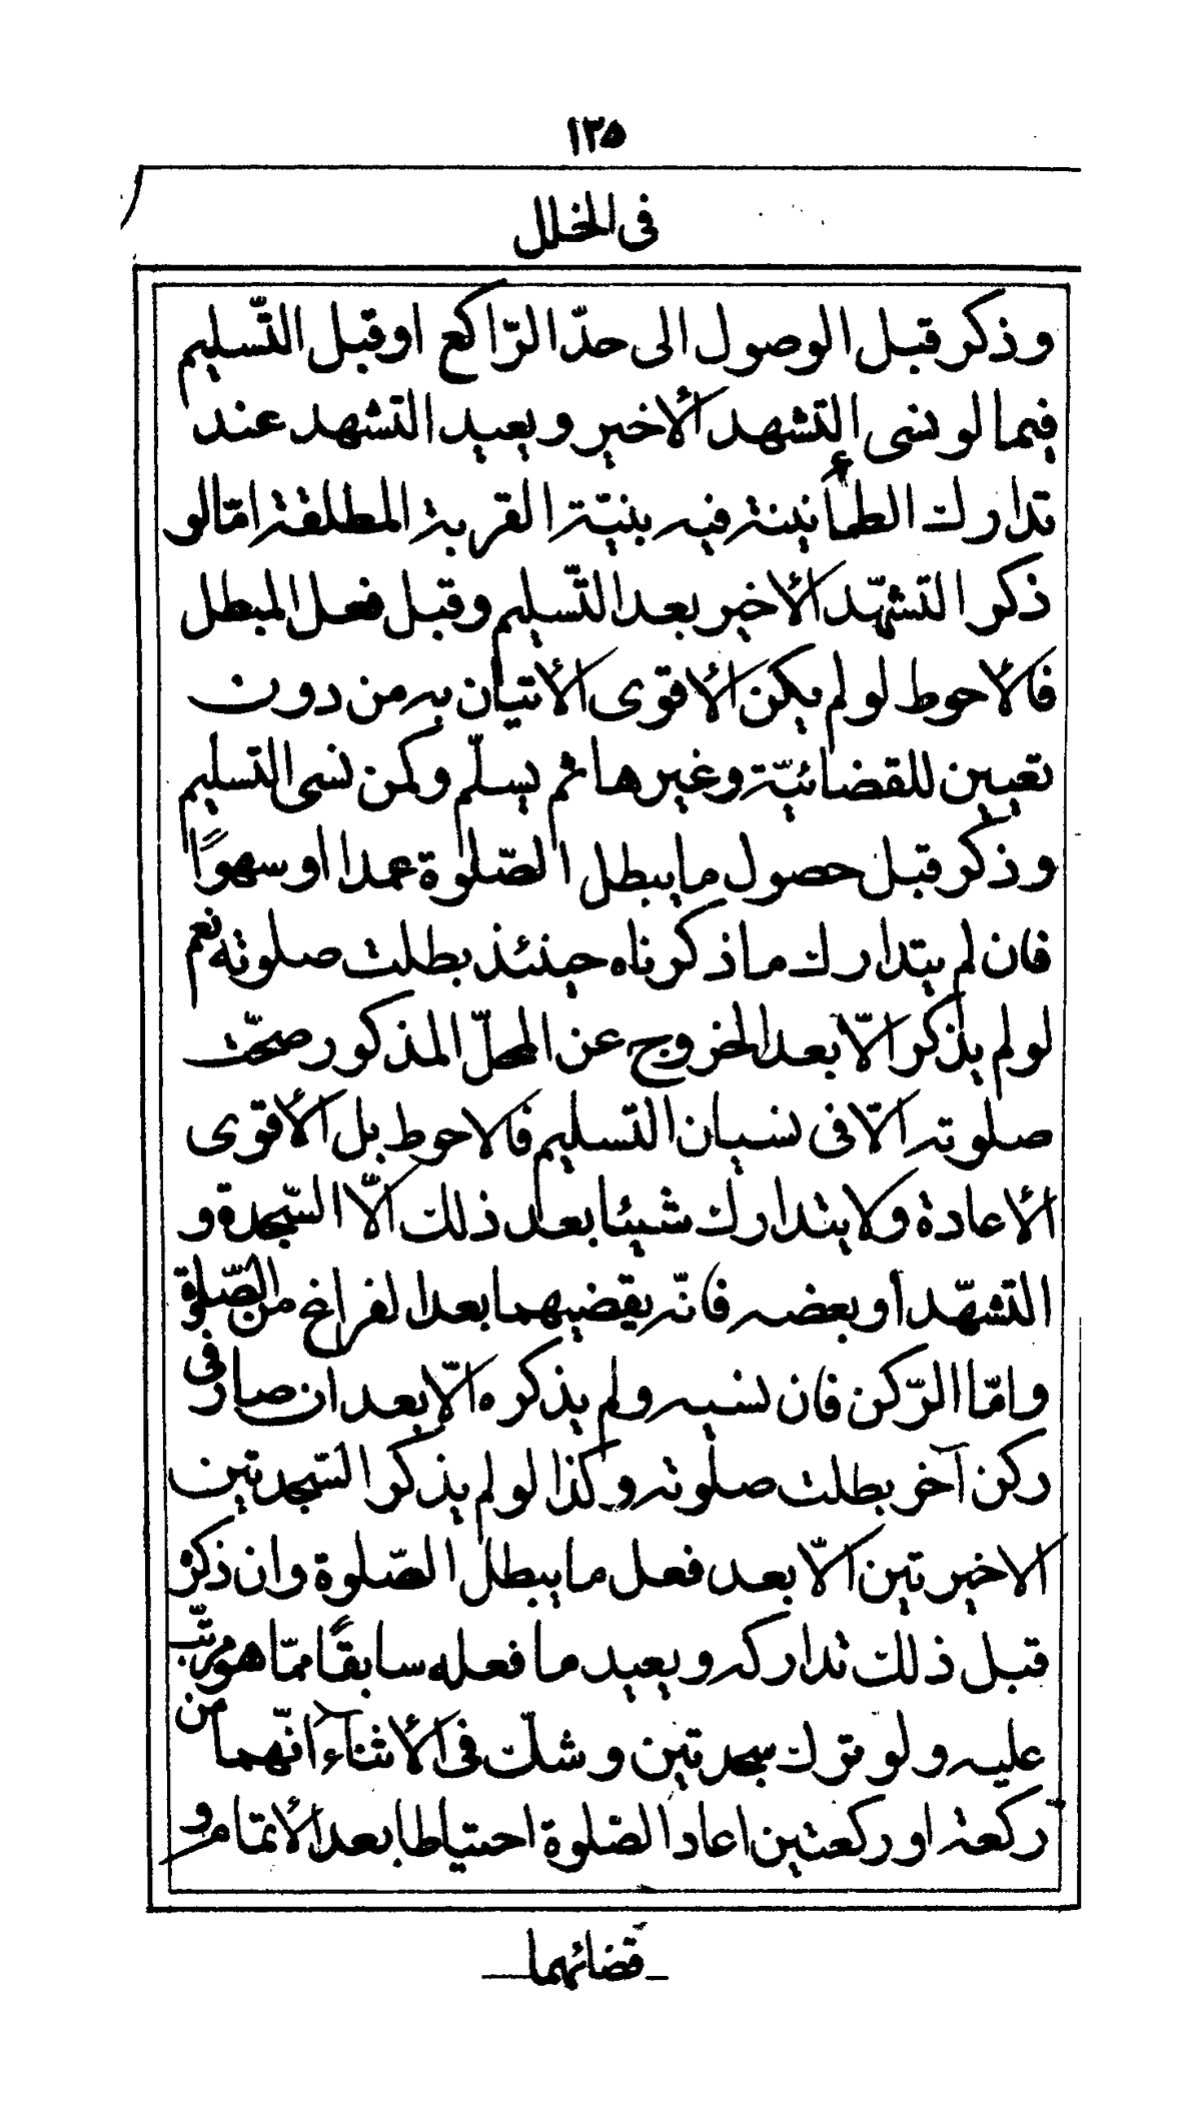 ١٣٥
فى الخلل
وذكر قبل الوصول الى حدّ الرّاكع او قبل التّسليم
فيما لو نسى التشهد الأخير ويعيد التشهد عند
تدارك الطمأنينة فيه بنيّة القربة المطلقة امّا لو
ذكر التشهّد الأخير بعد التّسليم وقبل فعل المبطل
فالأحوط لو لم يكن الأقوى الأتيان به من دون
تعيين للقضائيّة وغيرها ثم يسلّم وكمن نسى التسليم
وذكر قبل حصول ما يبطل الصّلوة عمدا او سهوًا
فان لم يتدارك ما ذكرناه حينئذ بطلت صلوته نعم
لو لم يذكر الّا بعد الخروج عن المحلّ المذكور صحّت
صلوته الّا فى نسيان التسليم فالاحوط بل الأقوى
الأعادة ولا يتدارك شيئا بعد ذلك الّا السّجدة و
التشهّد أو بعضه فانّه يقضيهما بعد الفراغ من الصّلوة
وامّا الرّكن فان نسيه ولم يذكره الّا بعد ان صار فى
ركن آخر بطلت صلوته وكذا لو لم يذكر السّجدتين
الاخيرتين الّا بعد فعل ما يبطل الصّلوة وان ذكره
قبل ذلك تداركه ويعيد ما فعله سابقًا ممّا هو مرتّب
عليه ولو ترك سجدتين وشك فى الأثنآء انّهما من
ركعة او ركعتين اعاد الصّلوة احتياطا بعد الأتمام و
قضائهما